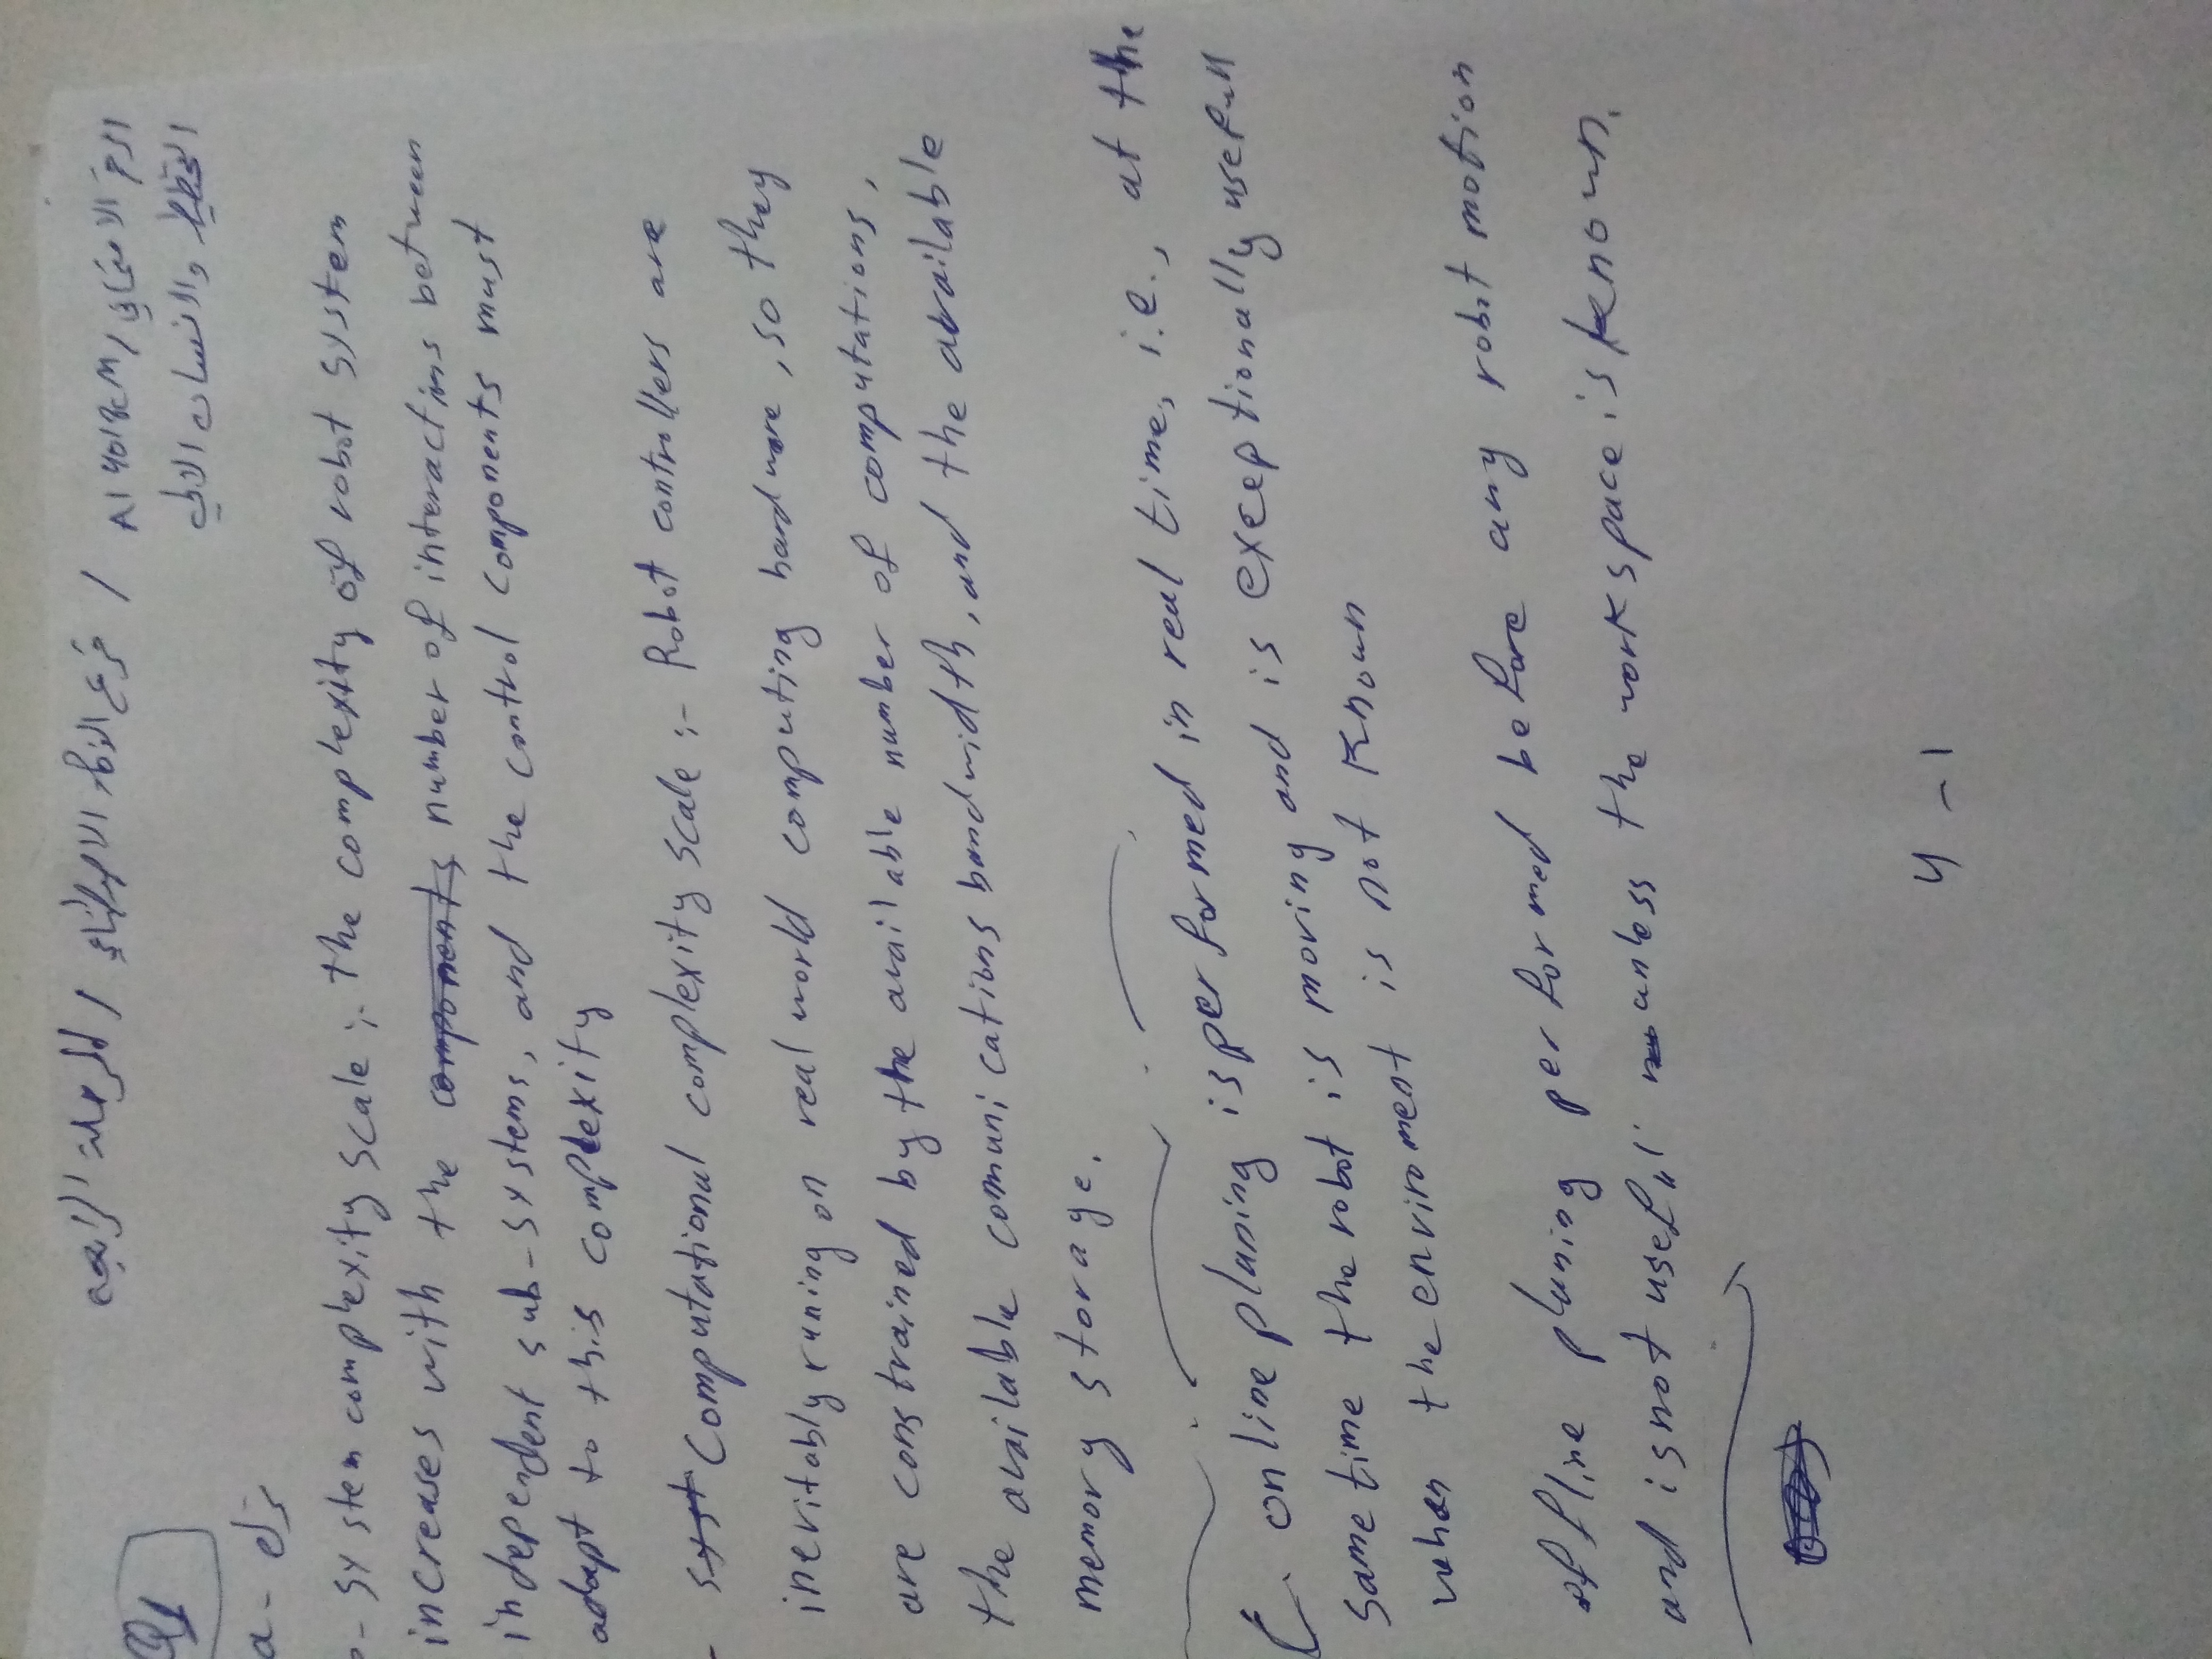 فرع الذكاء الاصطناعي / المرحلة الرابعة /
الرقم الامتحاني / A1401RM
والانسان الالي
Q1
a-
- system complexity scale :- the complexity of robot system
increases with the components number of interactins between
independent sub-systems, and the control components must
adapt to this complexity
- syst Computational complexity scale :- Robot controllers are
inevitably runing on real world computing hardware, so they
are constrained by the available number of computations,
the available comunications bandwidth, and the available
memory storage.
C online planing is performed in real time, i.e., at the
same time the robot is moving and is exceptionally usefull
when the enviroment is not known
offline planing performed before any robot motion
and is not useful unless the workspace is known.
4-1